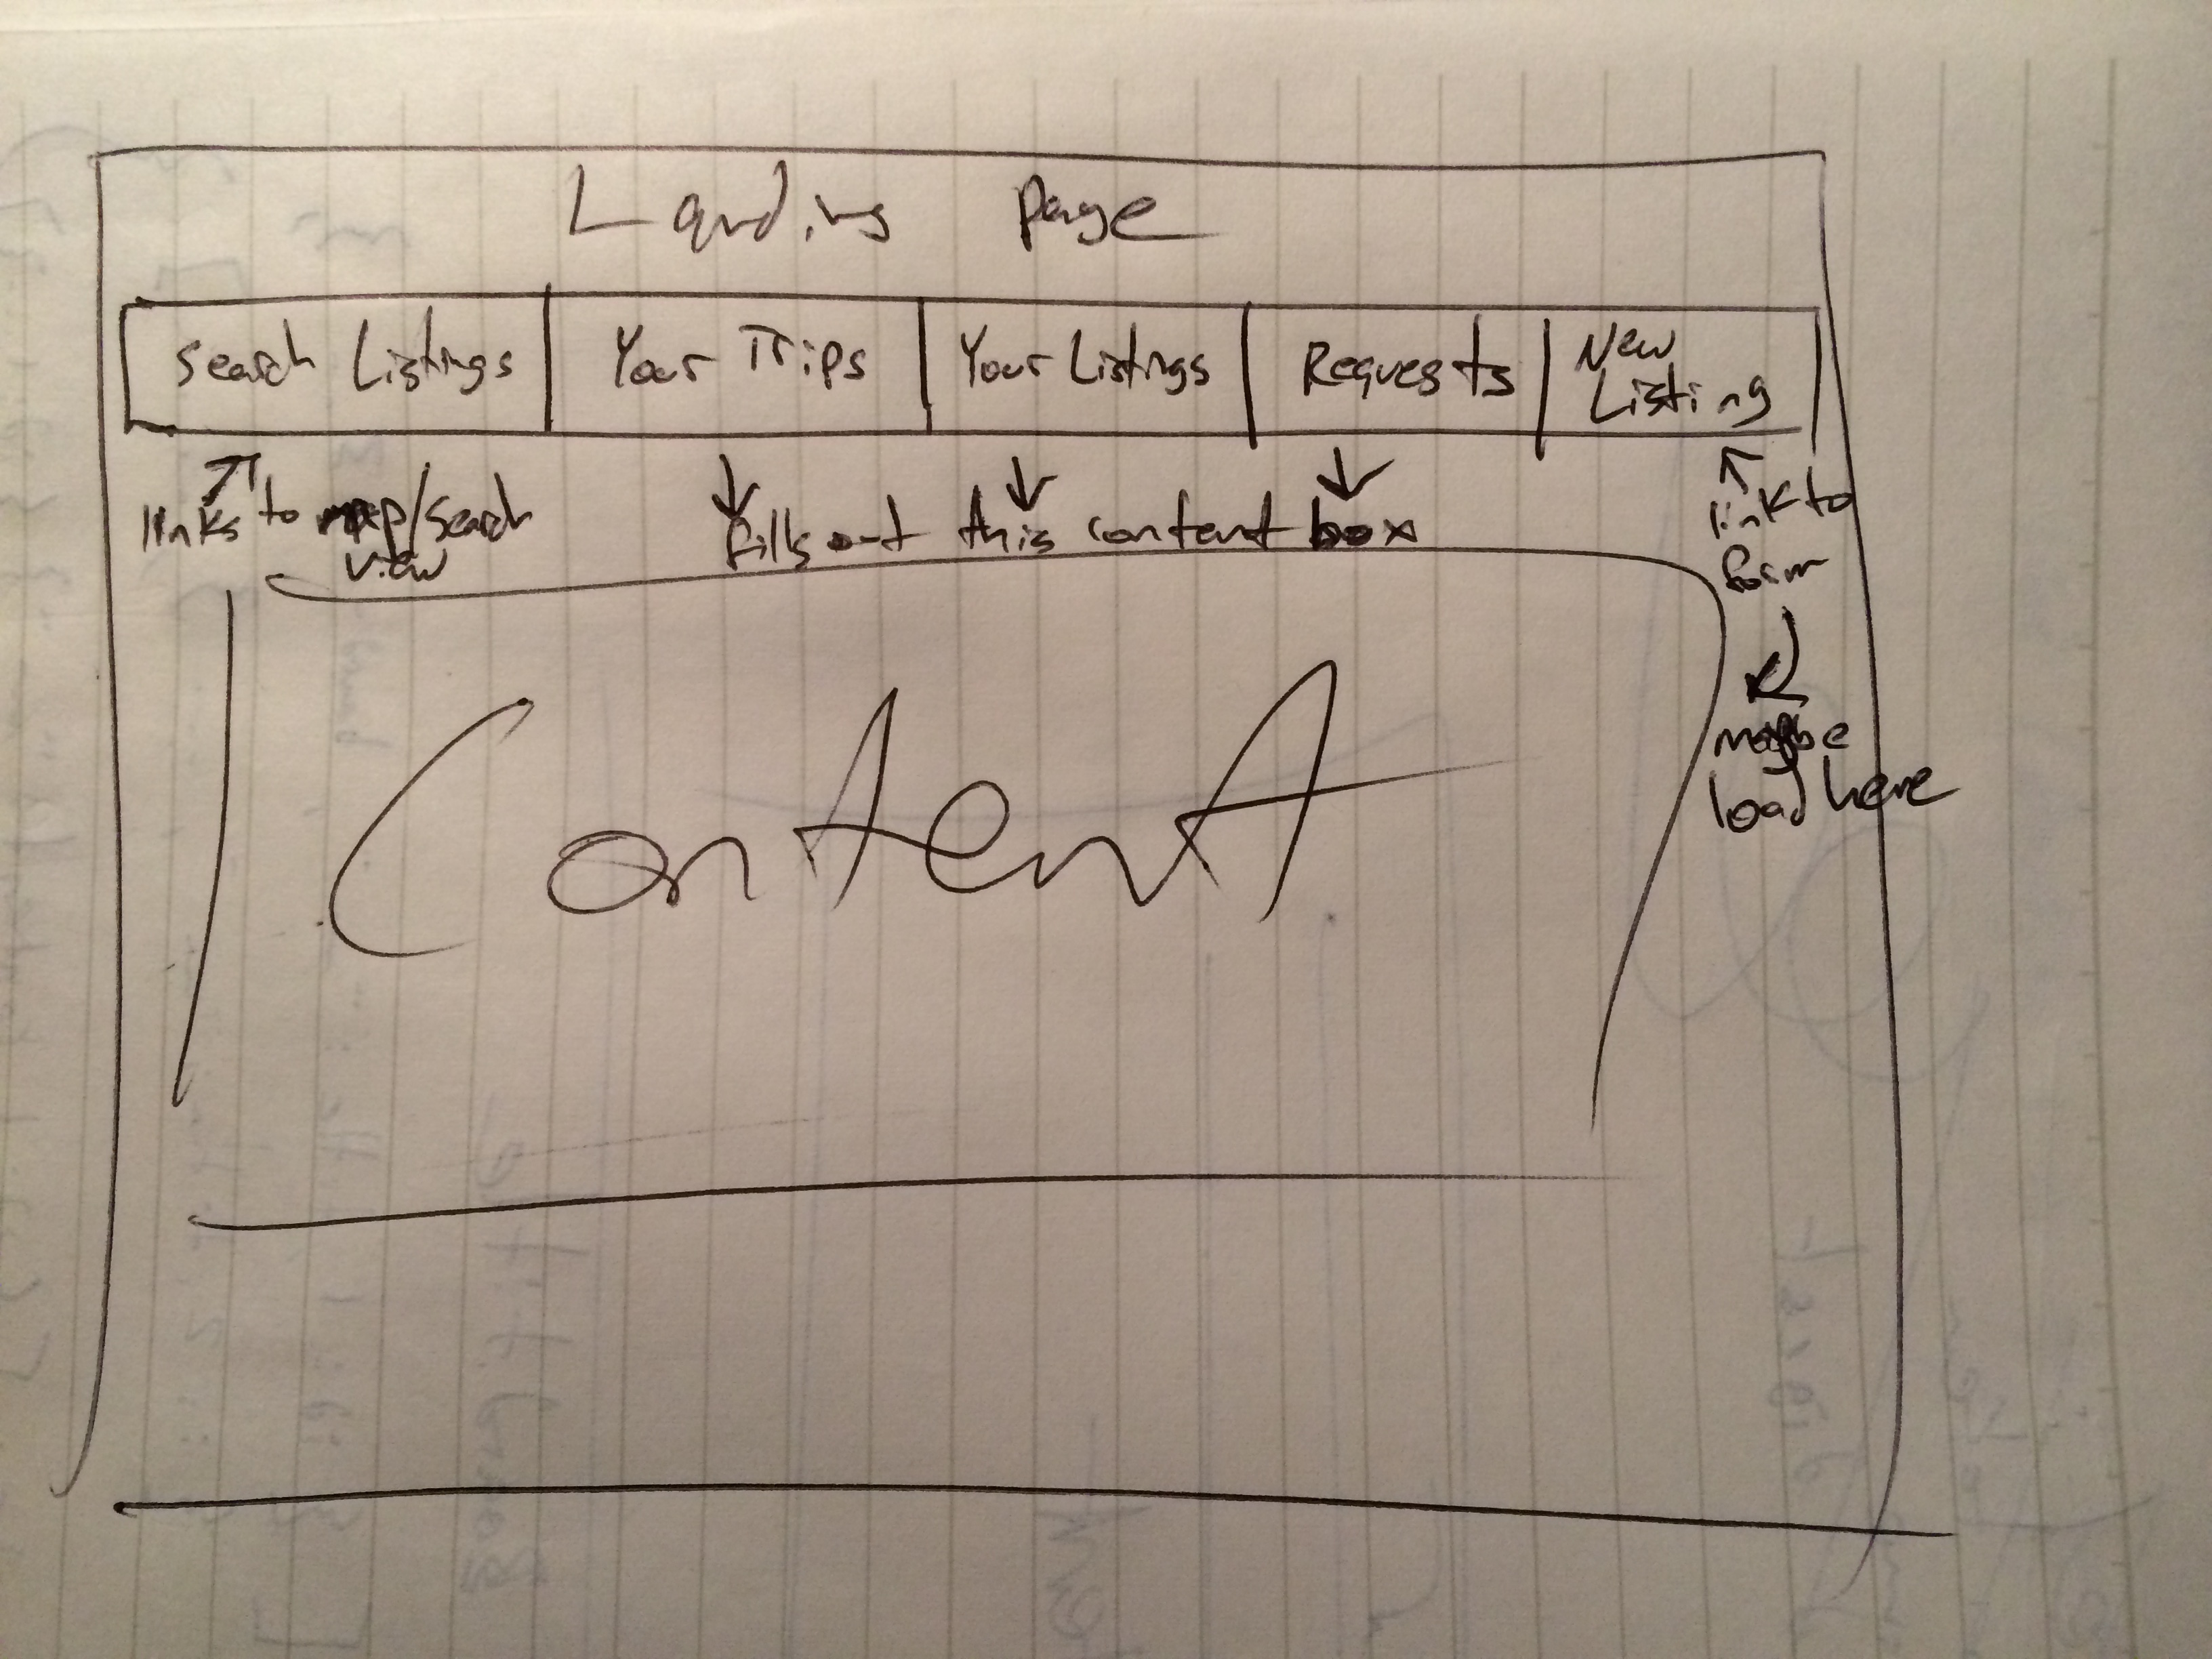 Landing Page
Search Listings
Your Trips
Your Listings
Requests
New
Listing
links to map/search
view
fills out this content box
link to
form
maybe
load here
Content